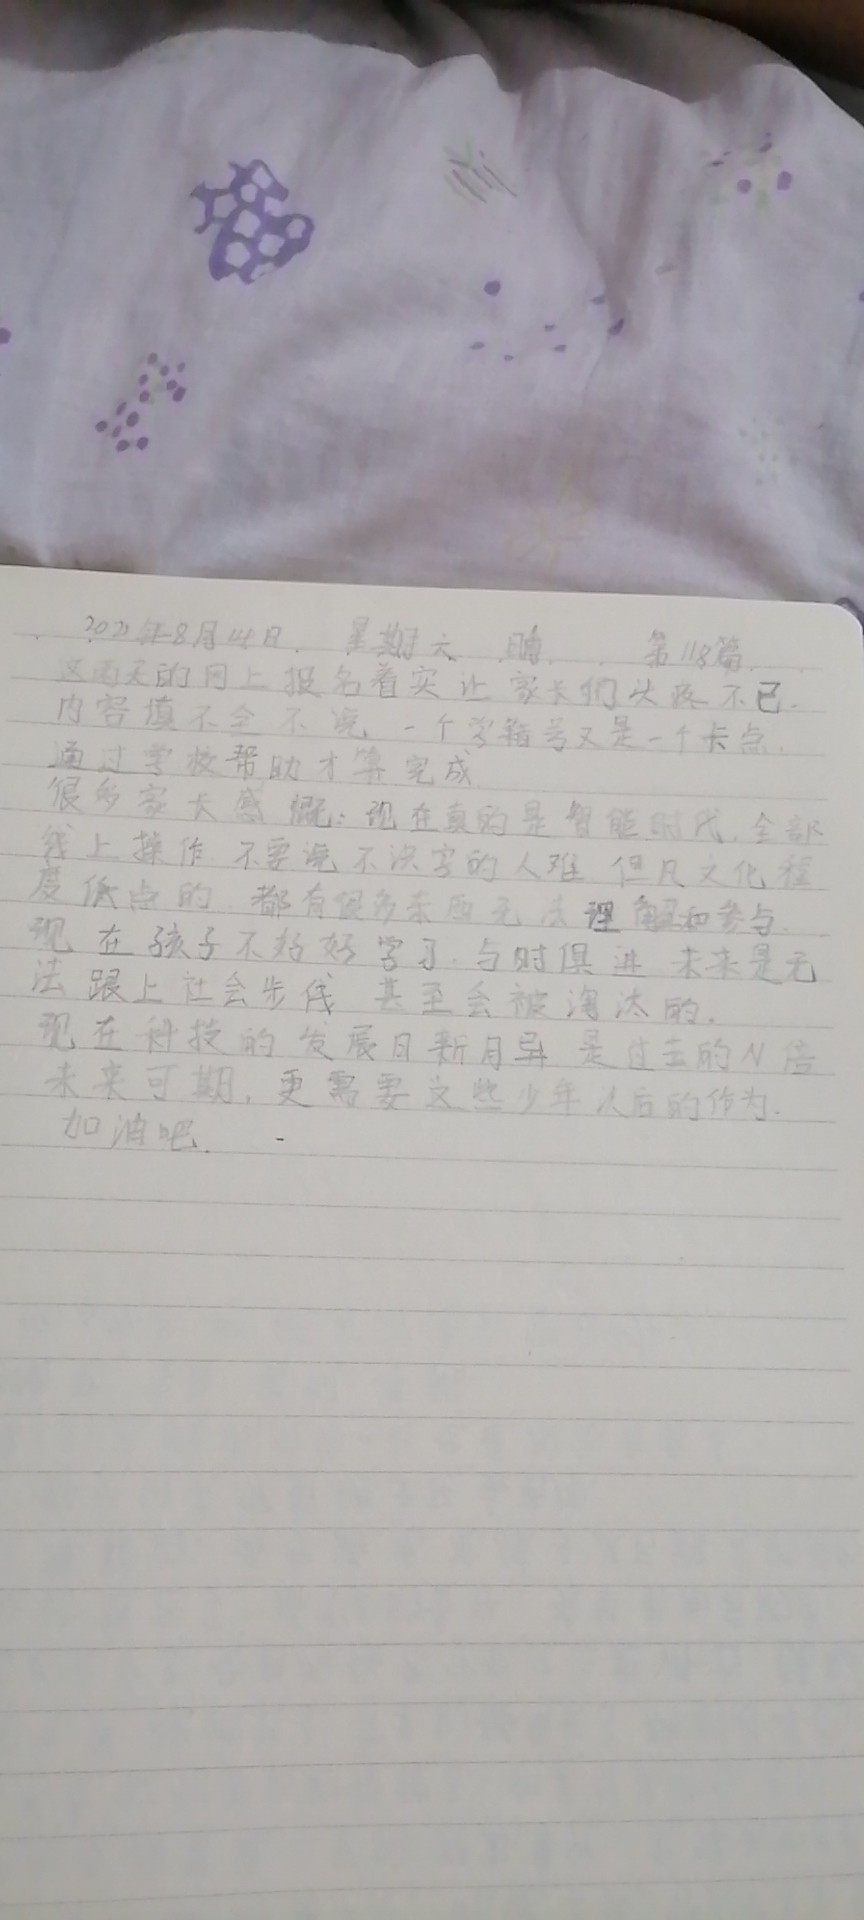 2021年8月14日. 星期六 晴. 第118篇.
这两天的网上报名着实让家长们头疼不已.
内容填不全不说 一个学籍号又是一个卡点.
通过学校帮助才算完成.
很多家长感慨:现在真的是智能时代.全部
线上操作.不要说不识字的人难 但凡文化程
度低点的 都有很多东西无法理解和参与.
现在孩子不好好学习.与时俱进 未来是无
法跟上社会步伐 甚至会被淘汰的.
现在科技的发展日新月异 是过去的N倍
未来可期.更需要这些少年以后的作为.
加油吧.